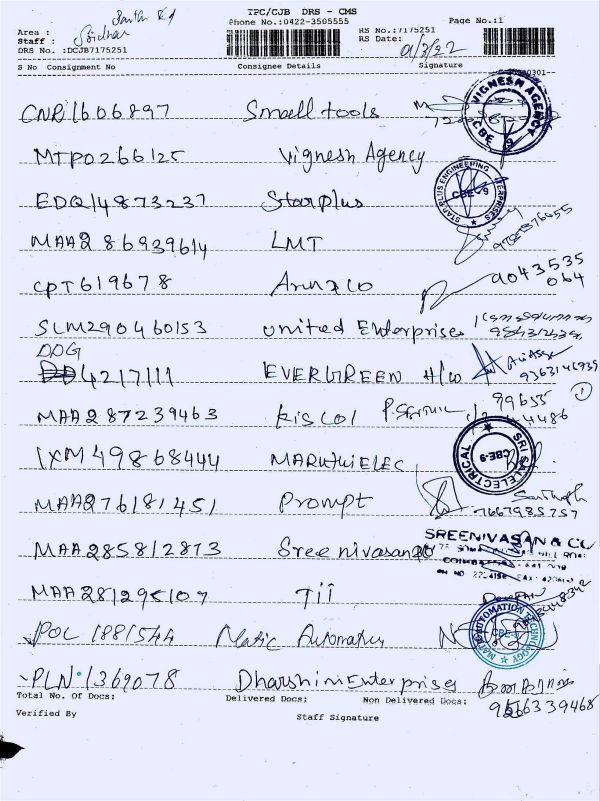 TPC/CJB DRS - CMS
Phone No.:0422-3505555
Page No.:1
Area :
Staff : Sridhar
DRS No. :DCJB7175251
RS No.:7175251
RS Date: 01/3/22
S No Consignment No Consignee Details Signature
CNR1606897 Small tools
VIGNESH AGENCY CBE 9
MTP0266125 Vignesh Agency
EDQ14873237 Starplus
STAR PLUS ENGINEERING ENTERPRISES CBE-9
MAA286939614 LMT
CPT619678
9043535
064
SLM290460153 United Enterprises
DDG
4217111 EVERGREEN H/W
MAA287239463 Kiscol
99655
4486
IXM49868444 MARUTHI ELEC
SRI SAI ELECTRICAL CBE-9
MAA276181451 Prompt
Santhosh
7667985757
MAA285812873 Sree nivasan &co
SREENIVASAN & CO
COIMBATORE
MAA281295107 TII
POL 1881544 Matic Automation
MATIC AUTOMATION TECHNOLOGY CBE-
PLN 1369078 Dharshini Enterprises
9566339468
Total No. Of Docs: Delivered Docs: Non Delivered Docs:
Verified By Staff Signature